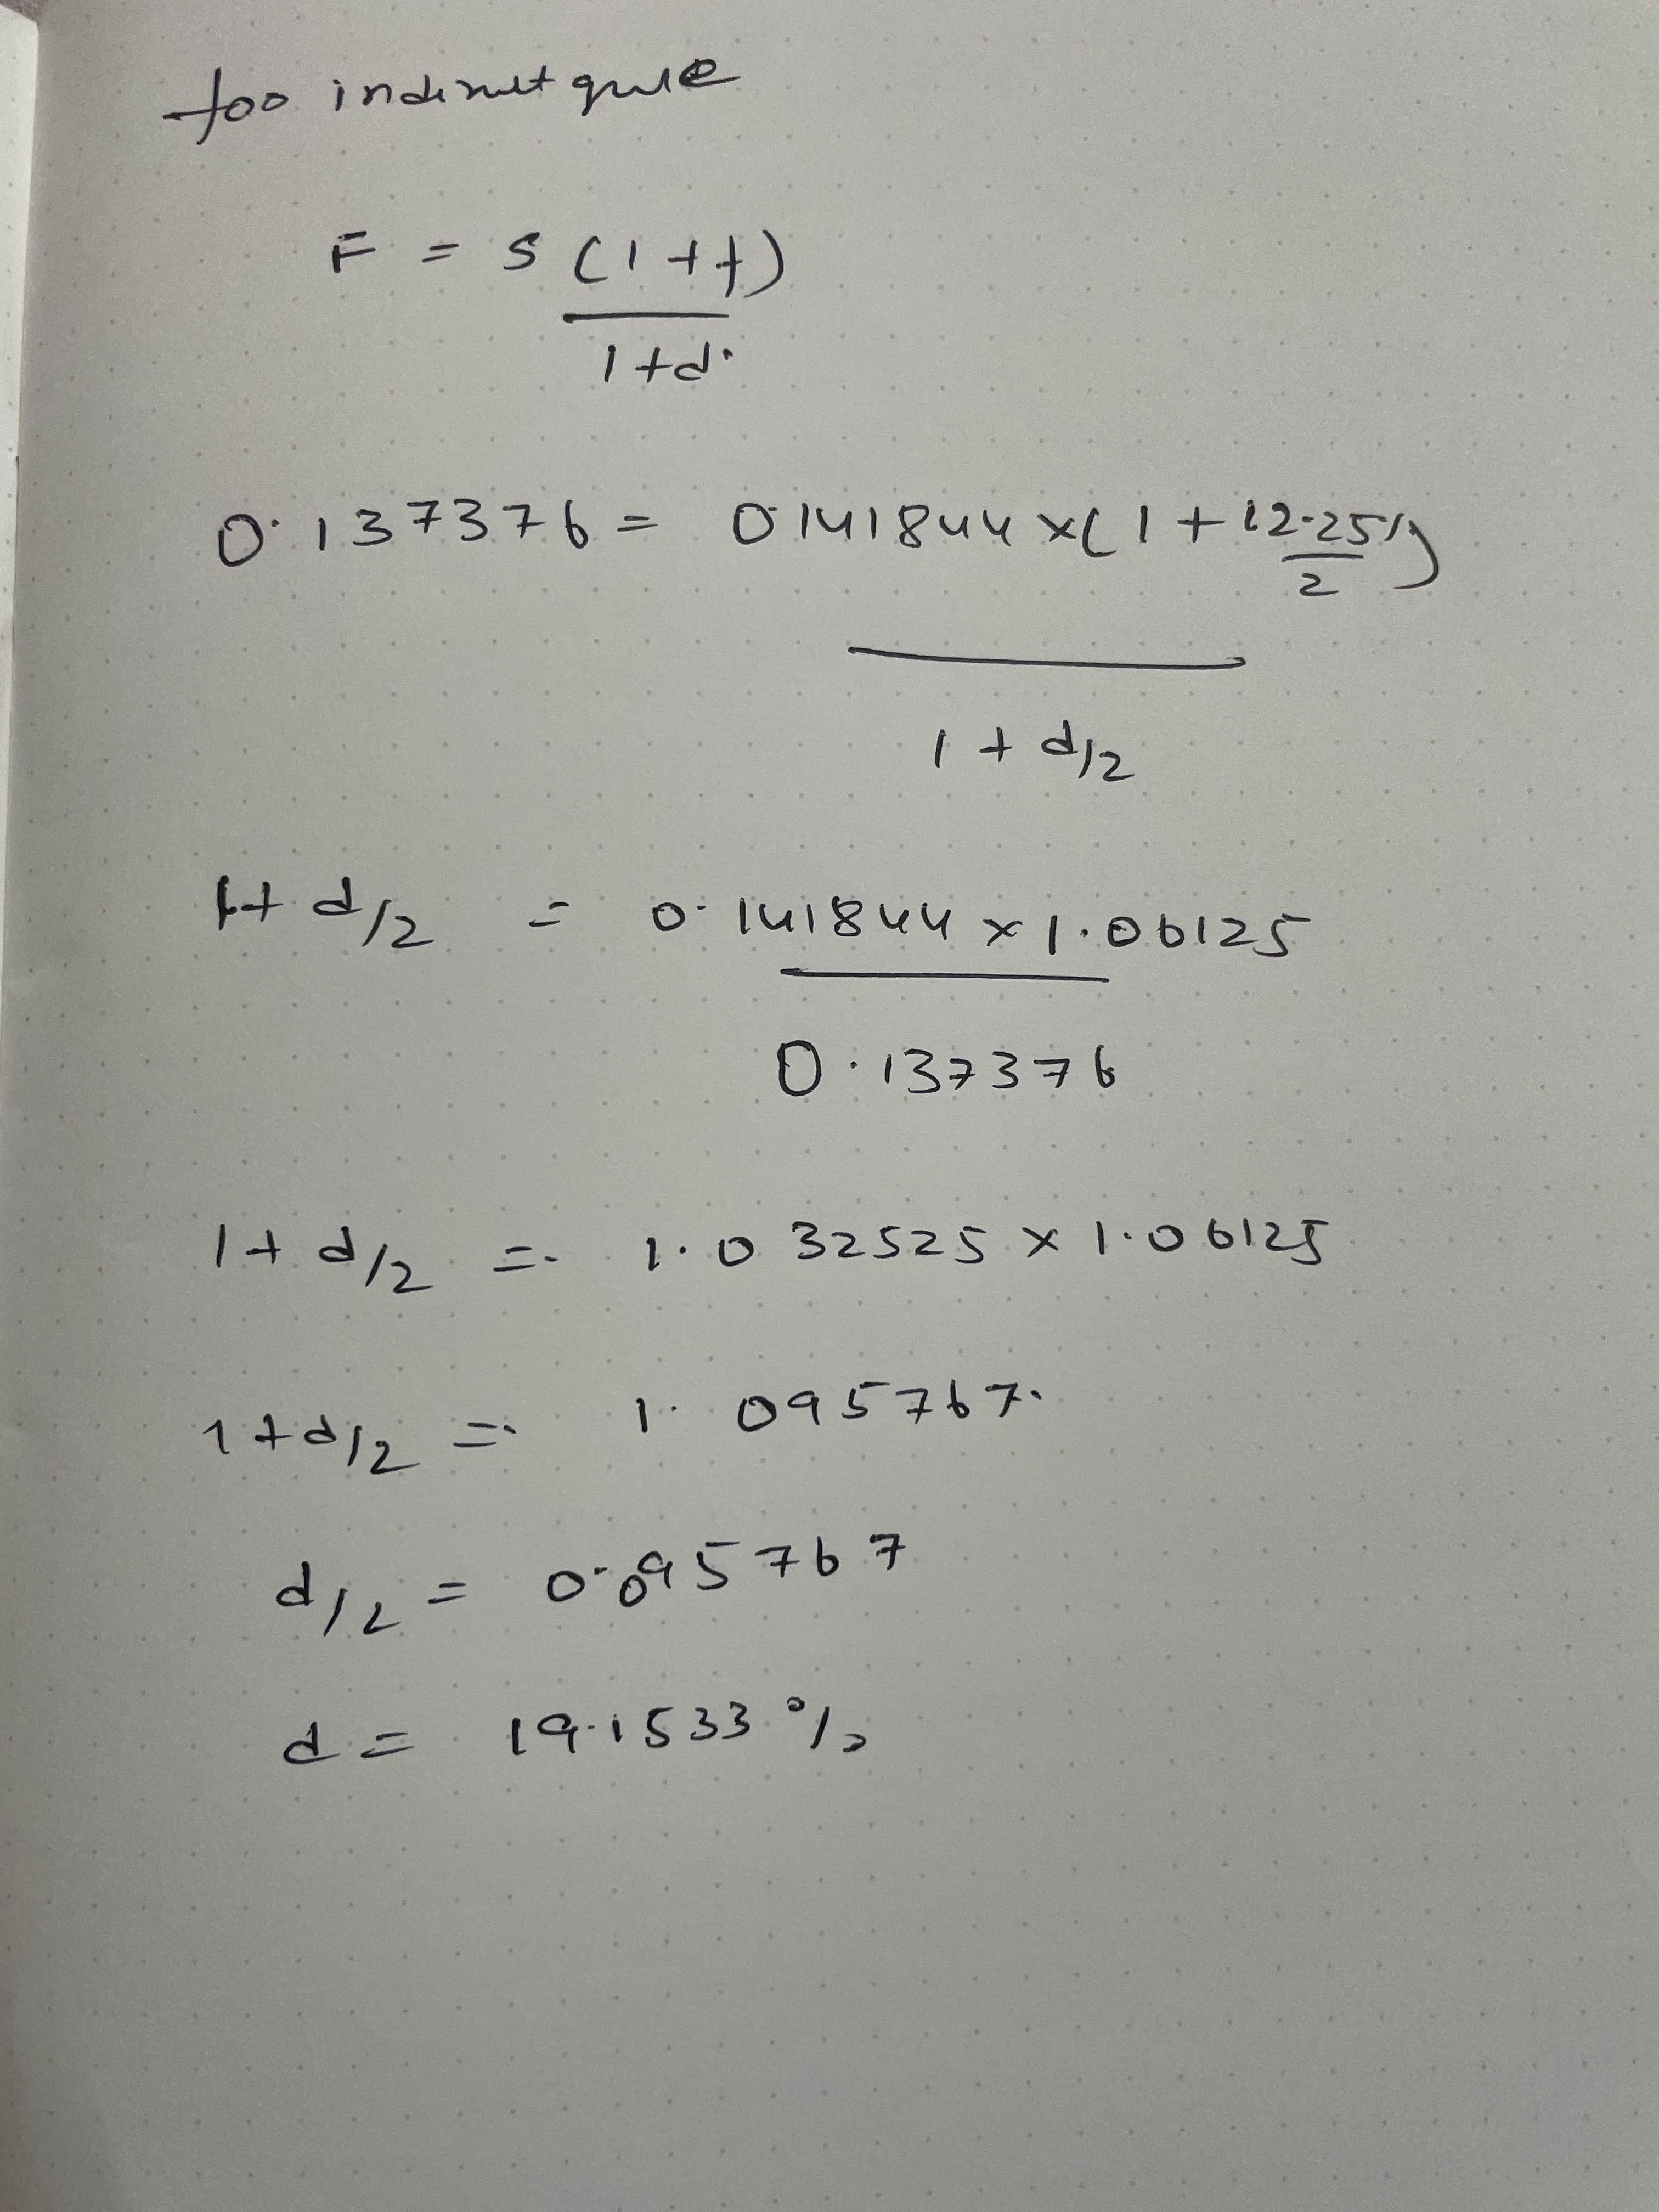 for indirect quote
F = S (1+f)
1+d
0.137376 = 0.141844 x (1 + 12.25%)
2
1 + d/2
1+ d/2 = 0.141844 x 1.06125
0.137376
1+ d/2 = 1.032525 x 1.06125
1+d/2 = 1.095767
d/2 = 0.095767
d = 19.1533 %